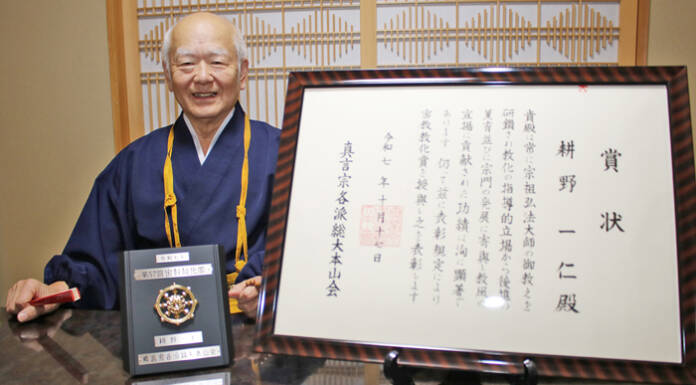 賞状
耕野一仁殿
貴殿は常に宗祖弘法大師の御教えを
研鑽され教化の指導的立場から後進の
薫育並びに宗門の発展に寄与し教風
宣揚に貢献された功績は洵に顕著で
あります 仍て茲に表彰規定により
宗教教化賞を授与し之を表彰します
令和七年十月十七日
真言宗各派総大本山会
第57回宗教教化賞